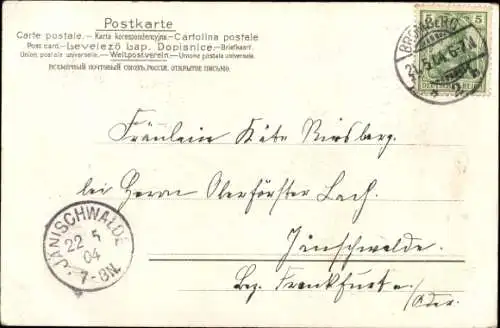 Postkarte
Carte postale – Karta korespondencyjna – Cartolina postale
Post card – Levelező Lap. Dopisnice. – Briefkaart.
Union postale universelle. – Weltpostverein. – Unione postale universale.
ВСЕМІРНЫЙ ПОЧТОВЫЙ СОЮЗЪ. РОССІЯ. ОТКРЫТОЕ ПИСЬМО.
5 5
BROMBERG
5.04.
DEUTSCHES REICH
Fräulein Käte
bei Herrn Oberförster Lach.
Jänschwalde
Bez. Frankfurt a/
Oder.
JÄNISCHWALDE
22 5
04
7-8N.